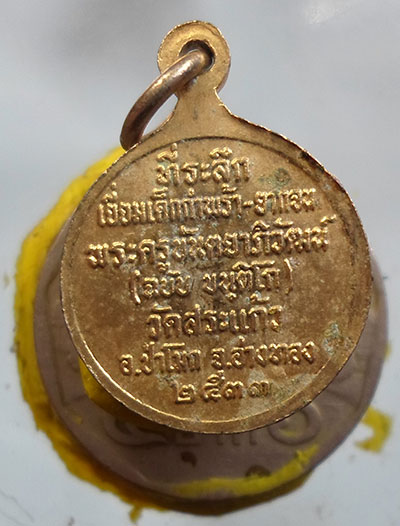 ที่ระลึก
เยี่ยมเด็กกำพร้า-อนาถา
พระครูขันตยาภิวัฒน์
(ฉบับ ขนฺติโก)
วัดสระแก้ว
อ.ป่าโมก จ.อ่างทอง
๒๕๓๓